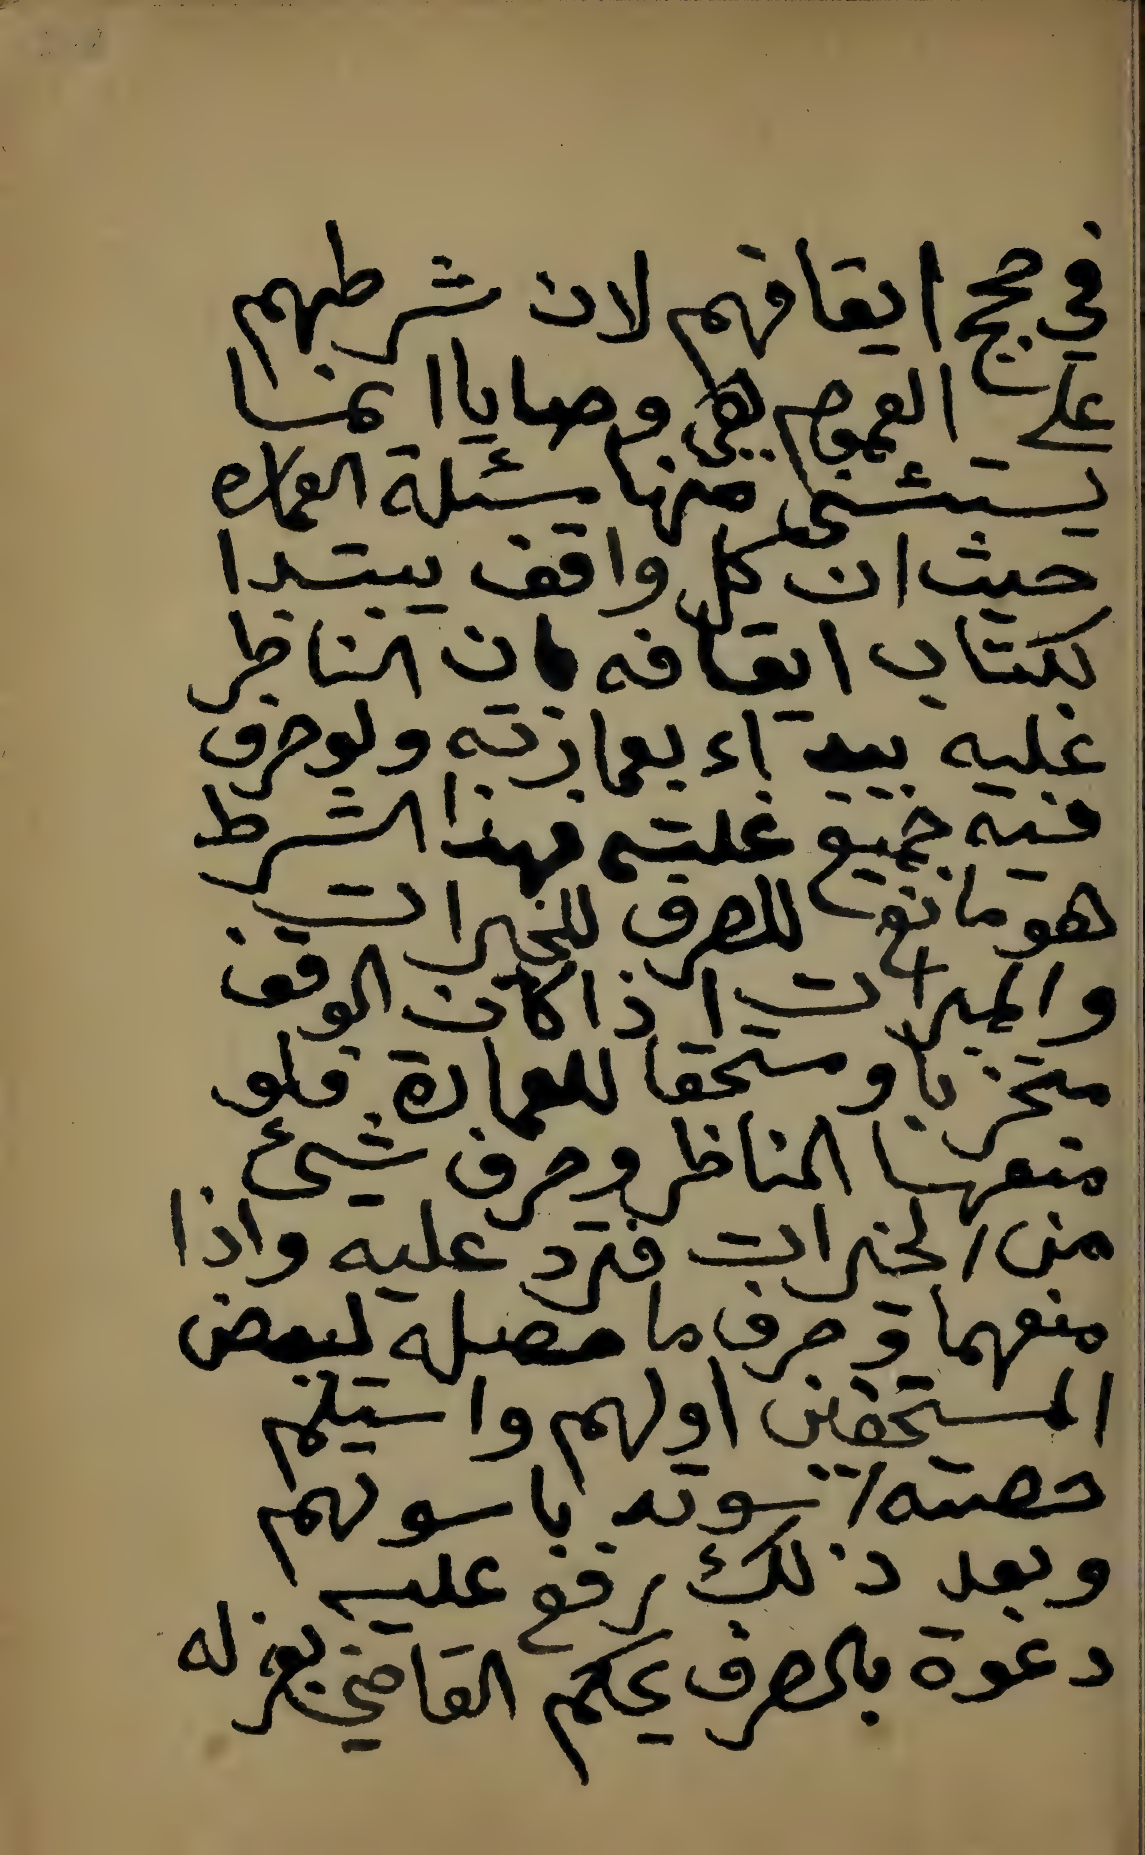 في حجج ايقافهم لان شرطهم
على العموم هي وصايا انما
يستثنى منها مسئلة العماره
حيث ان كل واقف يبتدا
بكتاب ايقافه بان الناظر
عليه يبداء بعمارته ولو صرف
فيه جميع غلته فهذا الشرط
هو مانع للصرف للخيرات
والمبرات اذا كان الوقف
متخربا ومستحقا للعمارة فلو
منعها الناظر وصرف شيئ
من الخيرات فترد عليه واذا
منعهما وصرف ما حصله لبعض
المستحقين اولهم واستلم
حصته اسوته باسوتهم
وبعد ذلك رفع عليه
دعوة بالصرف يحكم القاضي بعزله